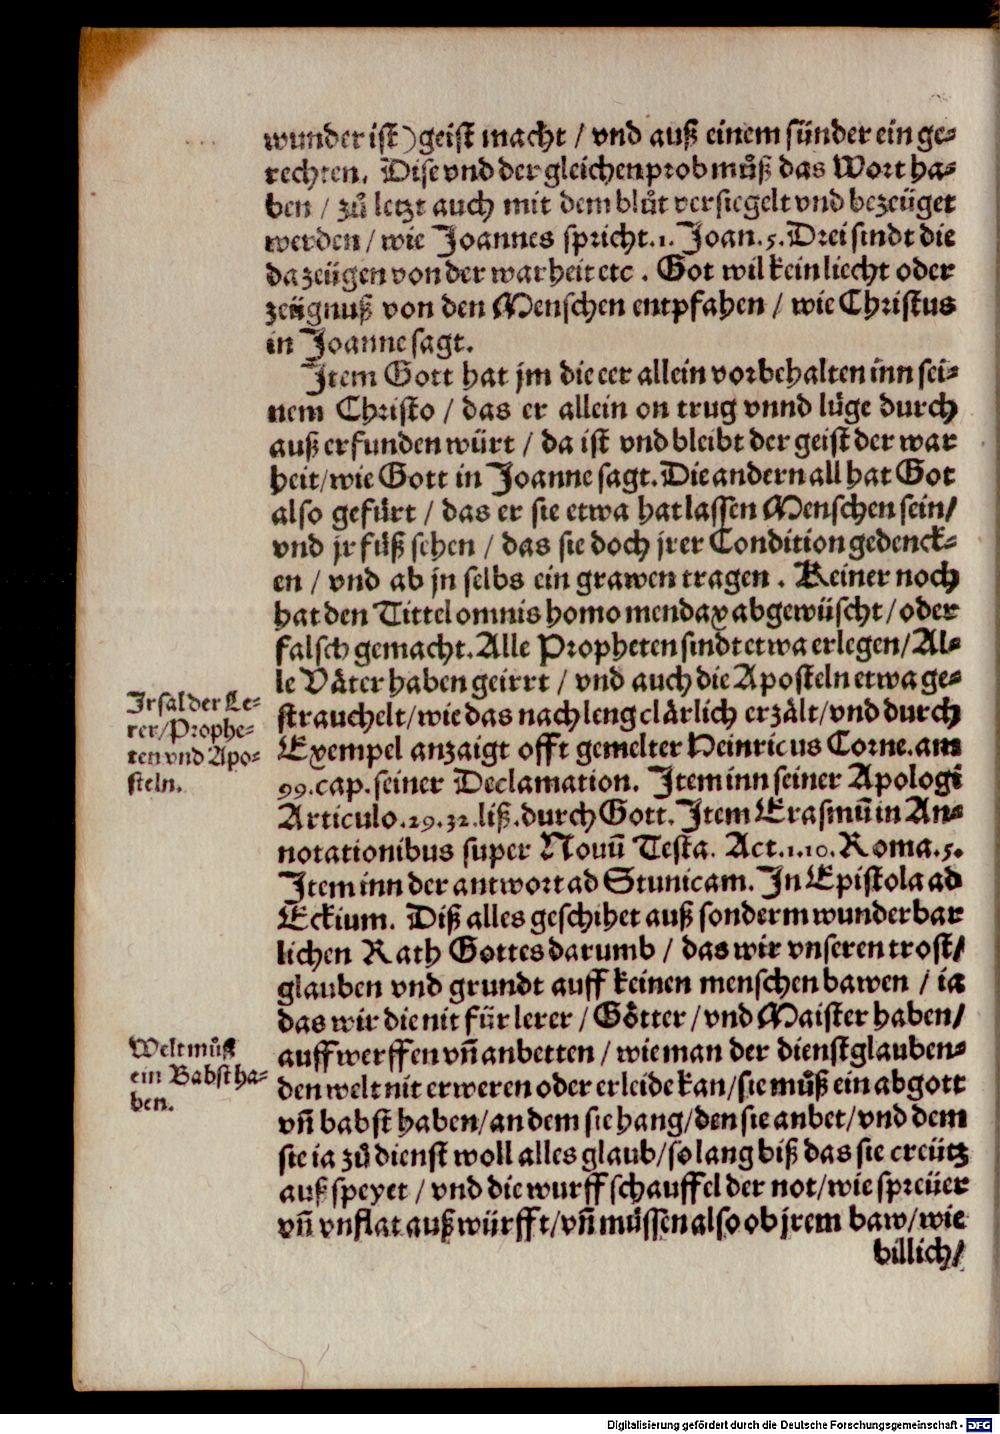 wunder ist) geist macht / vnd auß einem sünder ein ge⸗
rechten. Dise vnd der gleichen prob můß das Wort ha⸗
ben / zů letzt auch mit dem blůt versiegelt vnd bezeüget
werden / wie Joannes spricht.1. Joan.5. Drei sindt die
da zeügen von der warheit etc . Got wil kein liecht oder
zeügnuß von den Menschen entpfahen / wie Christus
in Joanne sagt.
Item Gott hat jm die eer allein vorbehalten inn sei⸗
nem Christo / das er allein on trug vnnd lüge durch
auß erfunden würt / da ist vnd bleibt der geist der war
heit/wie Gott in Joanne sagt. Die andern all hat Got
also gefürt / das er sie etwa hat lassen Menschen sein/
vnd jr füß sehen / das sie doch jrer Condition gedenck⸗
en / vnd ab jn selbs ein grawen tragen . Keiner noch
hat den Tittel omnis homo mendax abgewüscht/oder
falsch gemacht. Alle Propheten sindt etwa erlegen/Al⸗
le Väter haben geirrt / vnd auch die Aposteln etwa ge⸗
strauchelt/wie das nach leng clärlich erzält/vnd durch
Exempel anzaigt offt gemelter Heinricus Corne. am
99.cap. seiner Declamation. Item inn seiner Apologi
Articulo.29.32.liß.durch Gott. Item Erasmū in An⸗
notationibus super Nouū Testa. Act.1.10. Roma.5.
Item inn der antwort ad Stunicam. In Epistola ad
Eckium. Diß alles geschihet auß sonderm wunderbar
lichen Rath Gottes darumb / das wir vnseren trost/
glauben vnd grundt auff keinen menschen bawen / ia
das wir die nit für lerer / Götter / vnd Maister haben/
auffwerffen vñ anbetten / wie man der dienstglauben⸗
den welt nit erweren oder erleide kan/sie můß ein abgott
vñ babst haben/an dem sie hang/den sie anbet/vnd dem
sie ia zů dienst woll alles glaub/so lang biß das sie creütz
auß speyet / vnd die wurffschauffel der not/wie spreüer
vñ vnflat auß würfft/vñ müssen also ob jrem baw/wie
billich/
Irsal der Le⸗
rer/Prophe⸗
ten vnd Apo⸗
steln.
Welt můß
ein Babst ha⸗
ben.
Digitalisierung gefördert durch die Deutsche Forschungsgemeinschaft - DFG